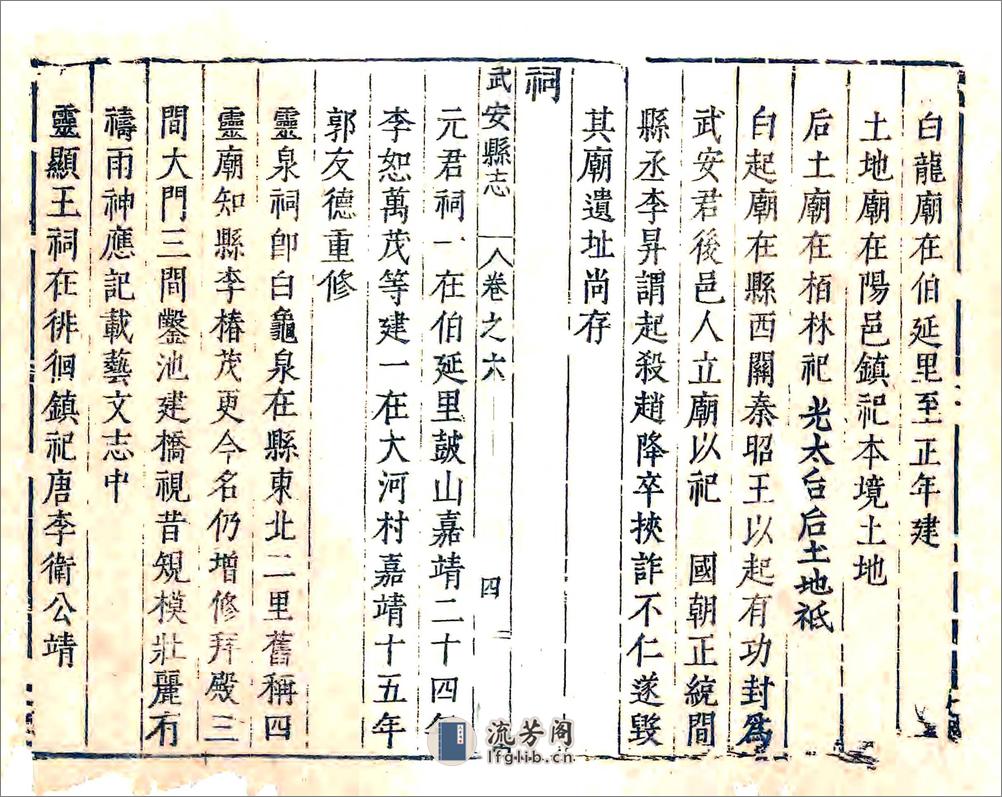 白龍廟在伯延里至正年建
土地廟在陽邑鎮祀本境土地
后土廟在栢林祀 光太台后土地祇
白起廟在縣西關秦昭王以起有功封爲
武安君後邑人立廟以祀 國朝正統間
縣丞李昇謂起殺趙降卒挾詐不仁遂毀
其廟遺址尚存
祠
武安縣志 卷之六 四
元君祠一在伯延里鼓山嘉靖二十四年
李恕萬茂等建一在大河村嘉靖十五年
郭友德重修
靈泉祠卽白龜泉在縣東北二里舊稱四
靈廟知縣李椿茂更今名仍增修拜殿三
間大門三間鑿池建橋視昔規模壯麗有
禱雨神應記載藝文志中
靈顯王祠在徘徊鎮祀唐李衛公靖
流芳阁
lfglib.cn